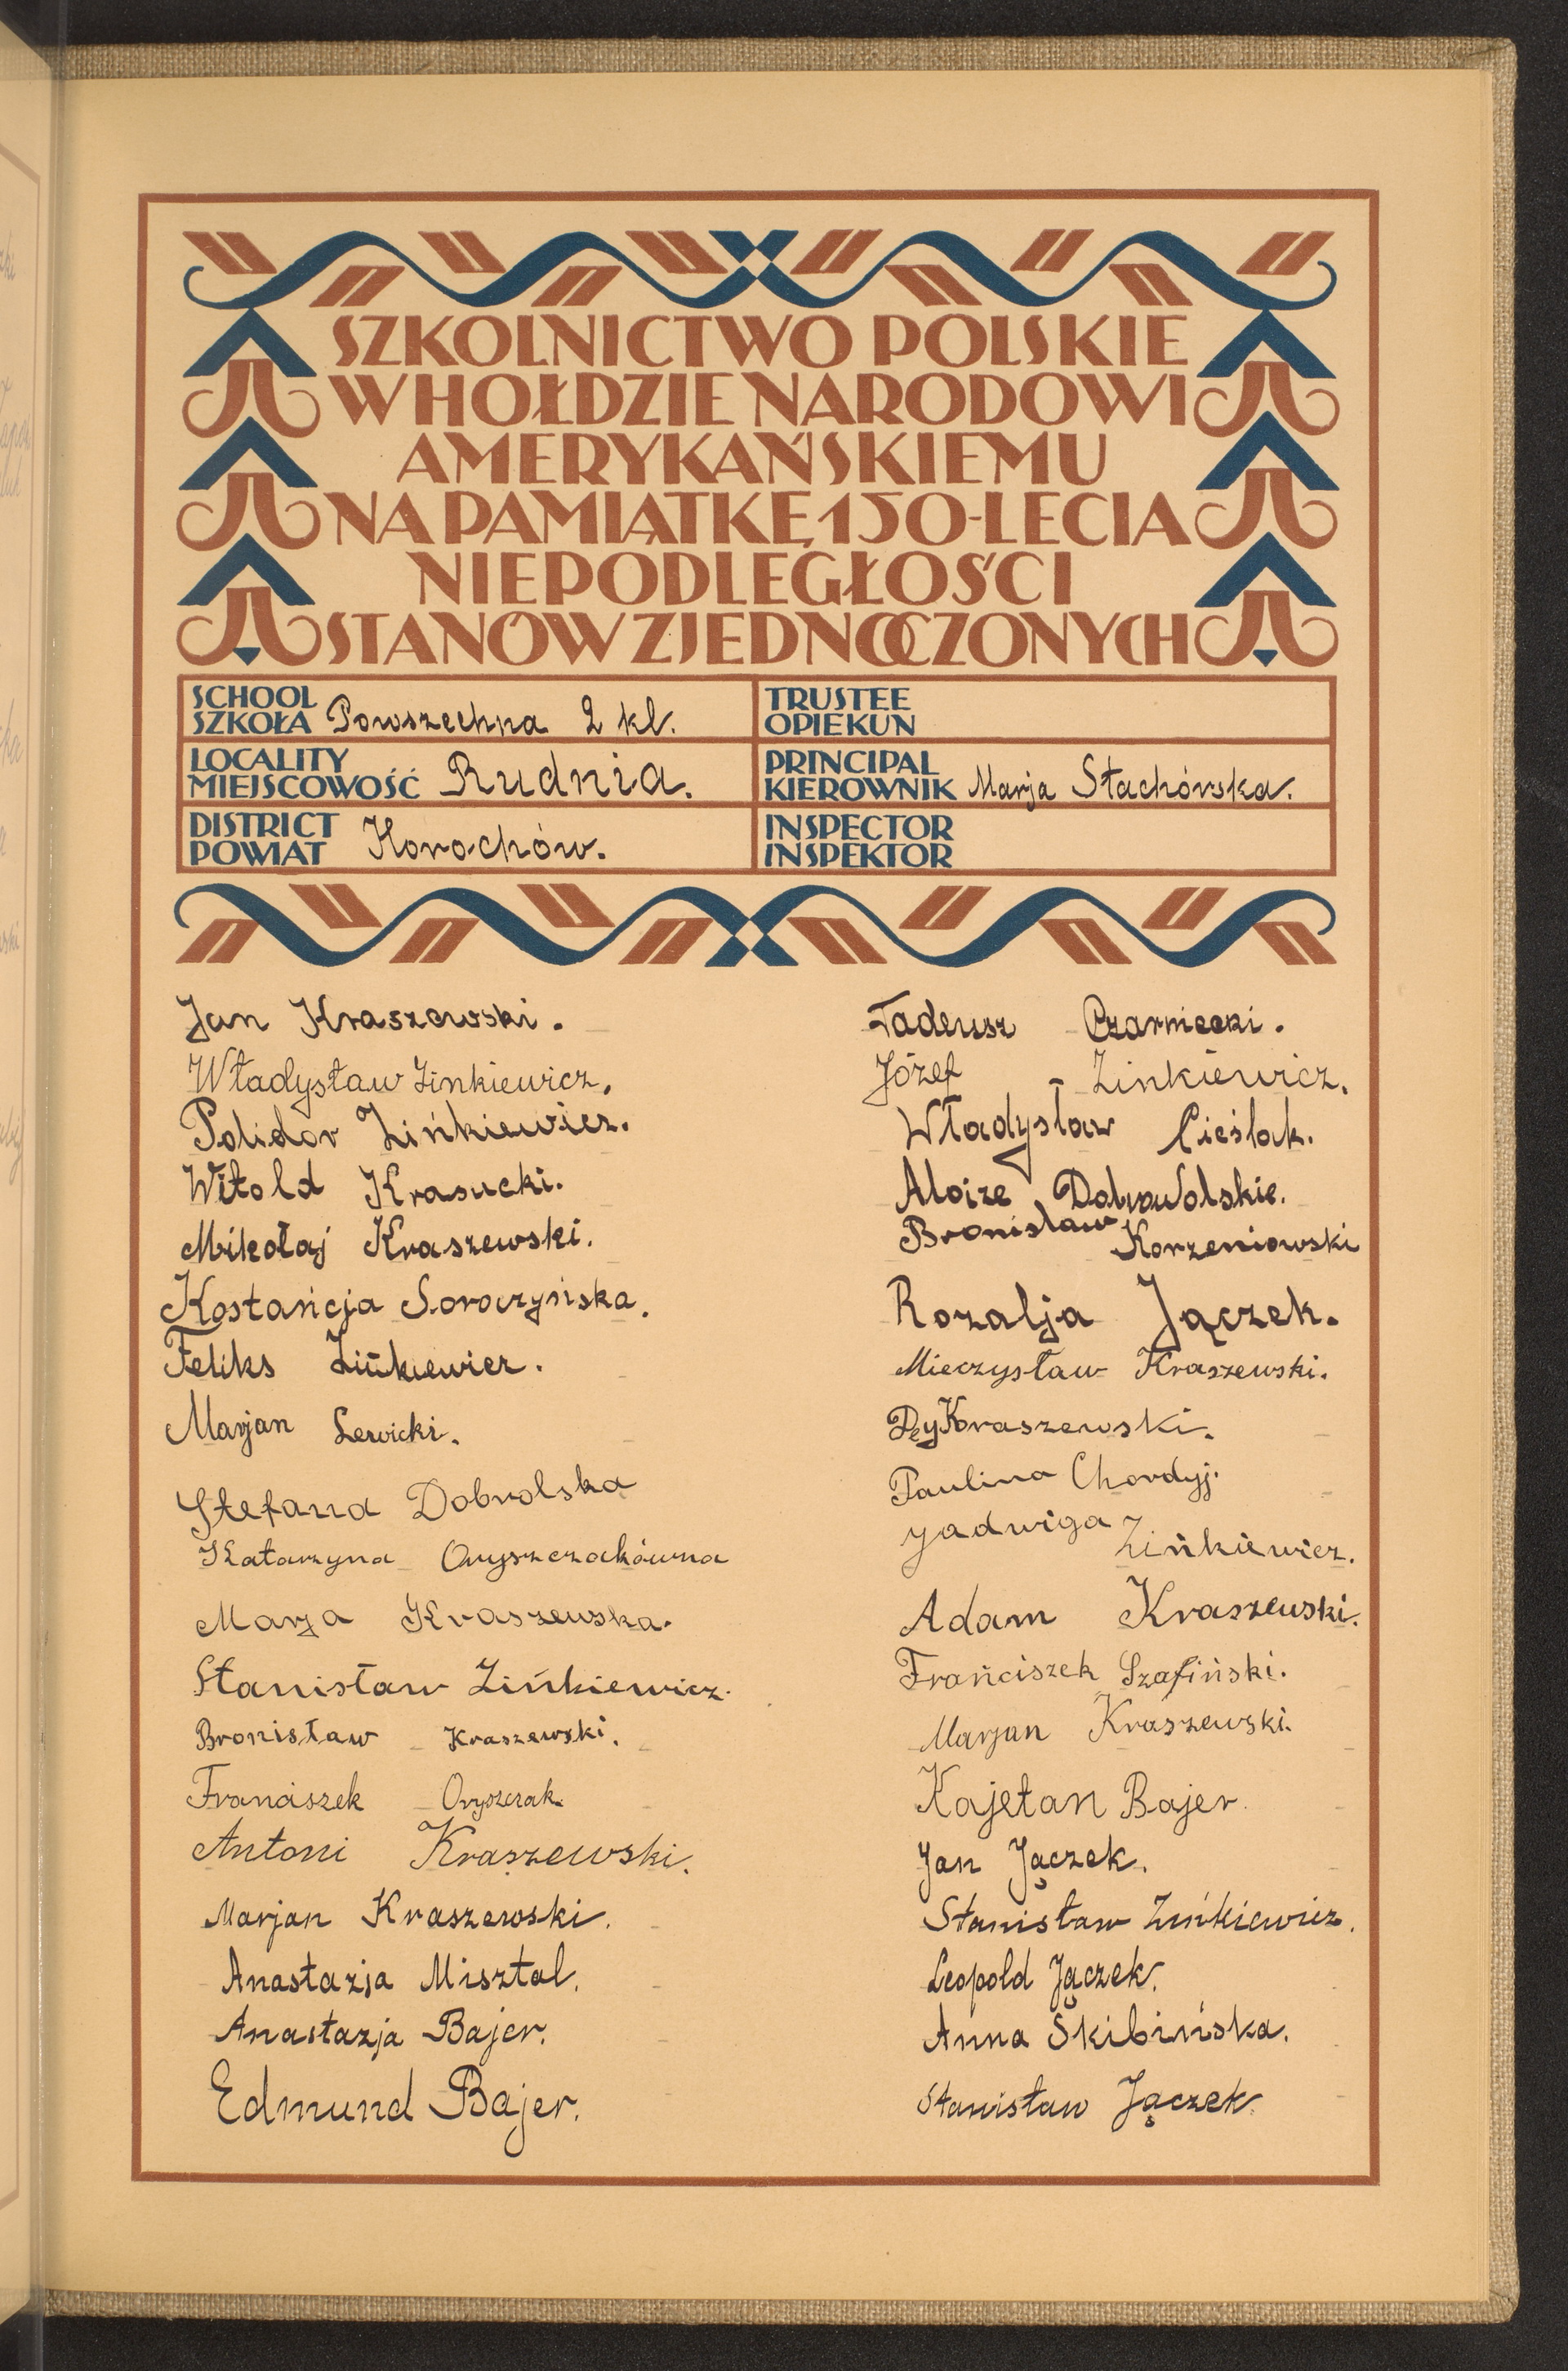 SZKOLNICTWO POLSKIE
W HOŁDZIE NARODOWI
AMERYKAŃSKIEMU
NA PAMIĄTKĘ 150-LECIA
NIEPODLEGŁOŚCI
STANÓW ZJEDNOCZONYCH
SCHOOL
SZKOŁA Powszechna 2 kl.
TRUSTEE
OPIEKUN
LOCALITY
MIEJSCOWOŚĆ Rudnia.
PRINCIPAL
KIEROWNIK Marja Stachórska.
DISTRICT
POWIAT Horochów.
INSPECTOR
INSPEKTOR
Jan Kraszewski.
Władysław Zinkiewicz.
Polidor Zińkiewicz.
Witold Krasucki.
Mikołaj Kraszewski.
Kostańcja Soroczyńska.
Feliks Zińkiewicz.
Marjan Lewicki.
Stefana Dobrolska
Katarzyna Oryszczakówna
Marja Kraszewska.
Stanisław Zińkiewicz.
Bronisław Kraszewski.
Franciszek Oryszczak.
Antoni Kraszewski.
Marjan Kraszewski.
Anastazja Misztal.
Anastazja Bajer.
Edmund Bajer.
Tadeusz Czarniecki.
Józef Zinkiewicz.
Władysław Cieślak.
Aloize Dobrowolskie.
Bronisław Korzeniowski
Rozalja Jączek.
Mieczysław Kraszewski.
Kraszewski.
Paulina Chordyj.
Jadwiga Zińkiewicz.
Adam Kraszewski.
Frańciszek Szafiński.
Marjan Kraszewski.
Kajetan Bajer.
Jan Jączek.
Stanisław Zińkiewicz.
Leopold Jączek.
Anna Skibińska.
Stanisław Jączek.